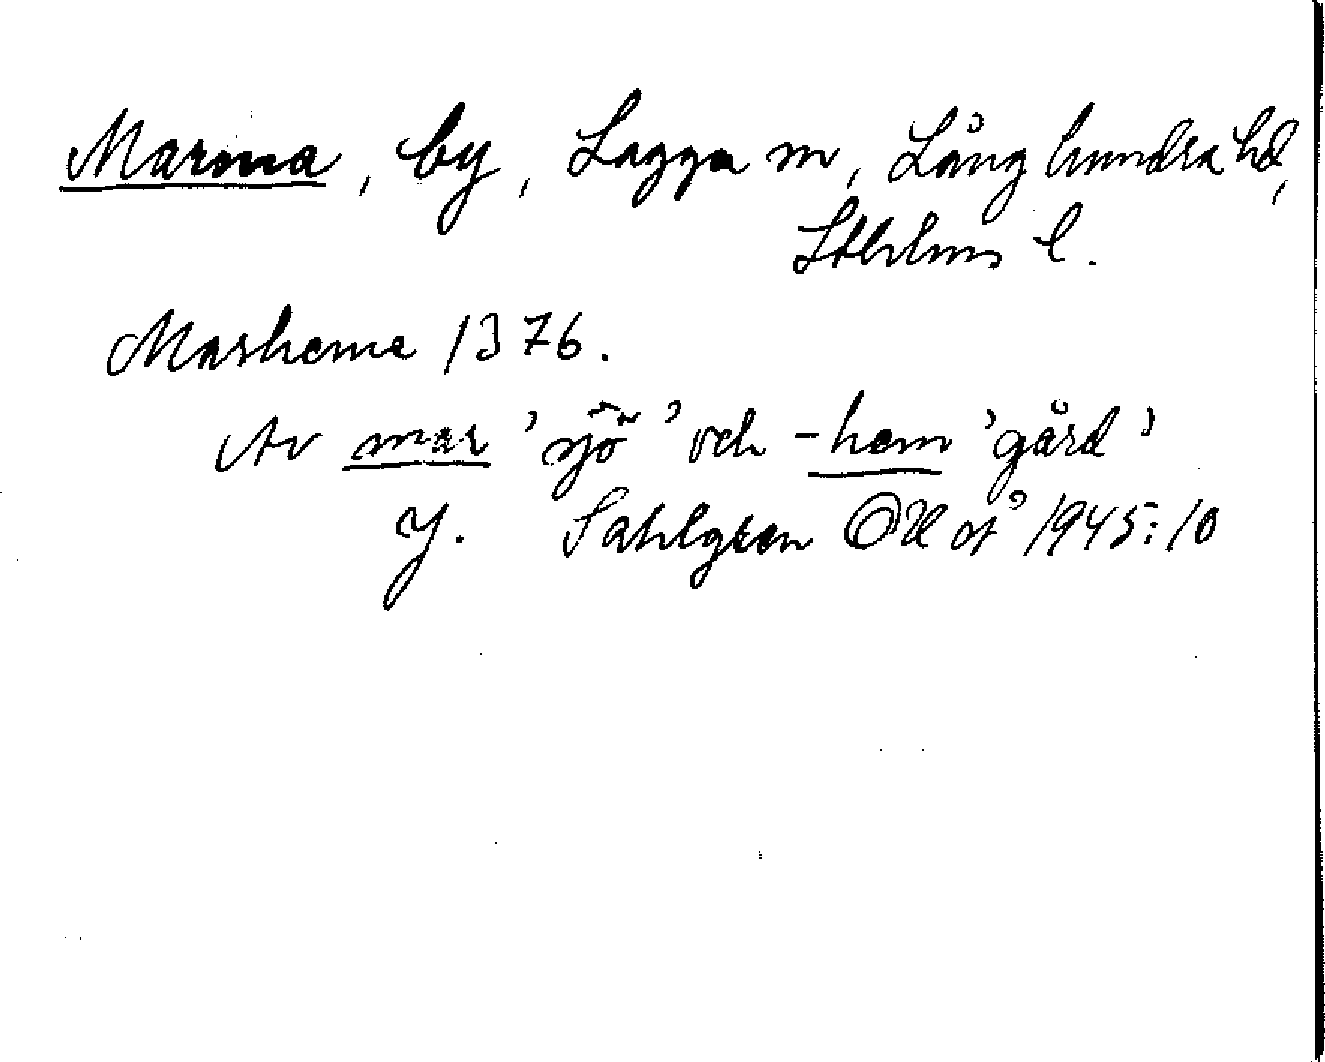 Marma, by, Lagga sn, Långhundra hd,
Sthlms l.
Marheme 1376.
Av mar 'sjö' och -hem 'gård'
J. Sahlgren OUoÅ 1945:10